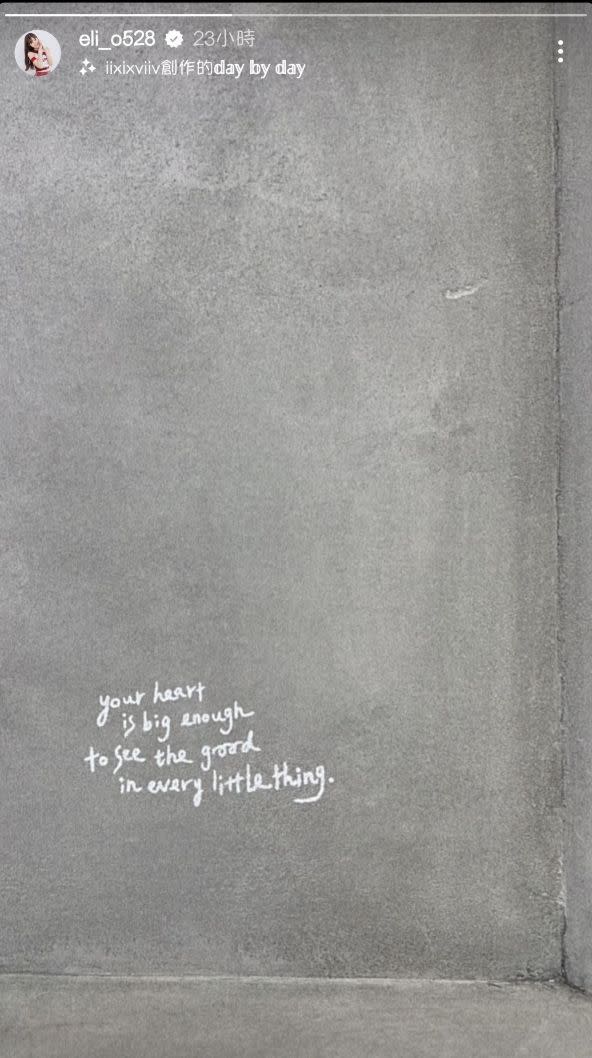 eli_o528 23小時
iixixviiv創作的day by day
your heart
is big enough
to see the good
in every little thing.